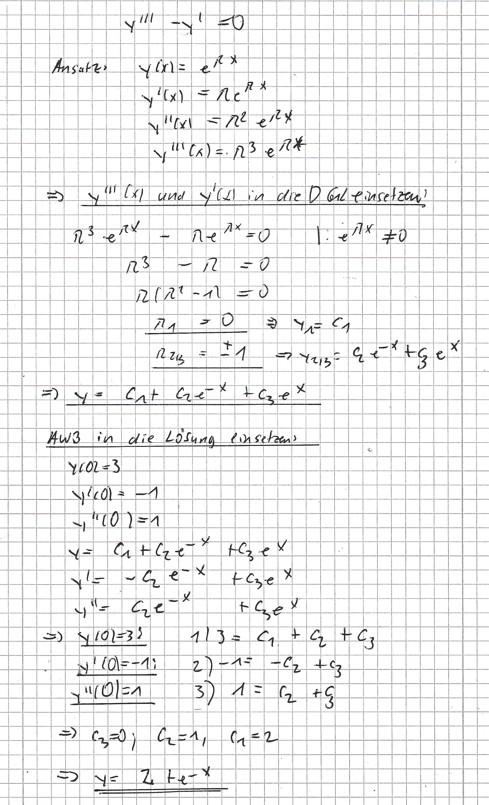 y''' - y' = 0
Ansatz: y(x) = e^{rx}
y'(x) = re^{rx}
y''(x) = r² e^{rx}
y'''(x) = r³ e^{rx}
=> y'''(x) und y'(x) in die DGL einsetzen:
r³ e^{rx} - re^{rx} = 0 |: e^{rx} ≠ 0
r³ - r = 0
r(r² - 1) = 0
r₁ = 0 => y₁ = C₁
r₂/₃ = ±1 => y₂/₃ = C₂ e^{-x} + C₃ e^x
=> y = C₁ + C₂ e^{-x} + C₃ e^x
AWB in die Lösung einsetzen:
y(0) = 3
y'(0) = -1
y''(0) = 1
y = C₁ + C₂ e^{-x} + C₃ e^x
y' = -C₂ e^{-x} + C₃ e^x
y'' = C₂ e^{-x} + C₃ e^x
=> y(0)=3: 1) 3 = C₁ + C₂ + C₃
y'(0)=-1: 2) -1 = -C₂ + C₃
y''(0)=1 3) 1 = C₂ + C₃
=> C₃=0; C₂=1, C₁=2
=> y = 2 + e^{-x}